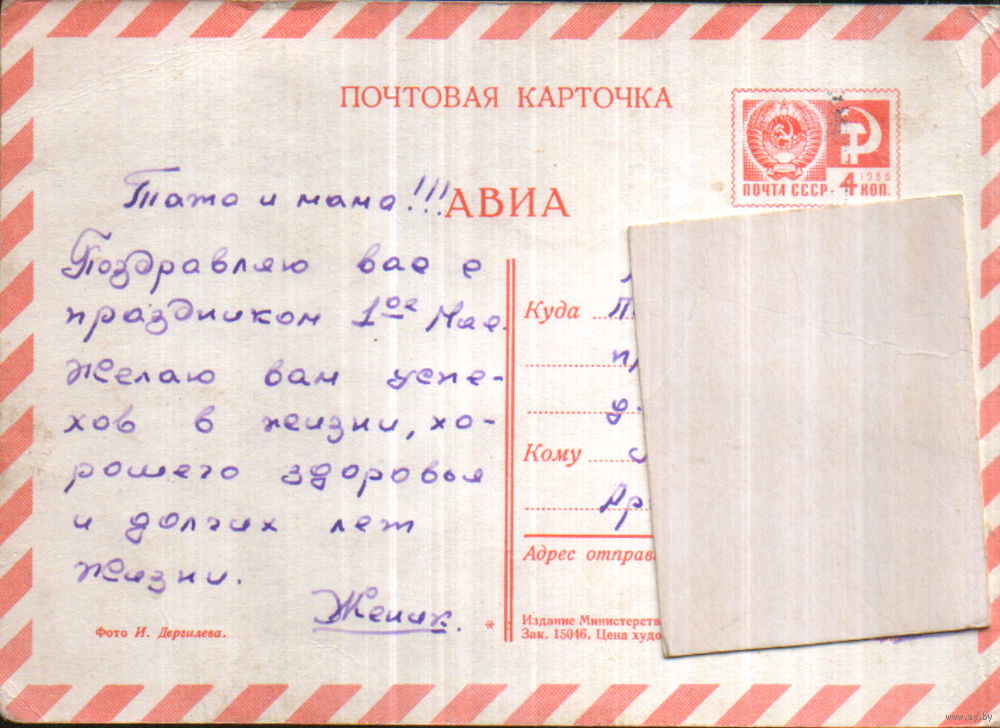 ПОЧТОВАЯ КАРТОЧКА
АВИА
1966
ПОЧТА СССР 4 КОП.
Тата и мама!!!
Поздравляю вас с
праздником 1ое Мая.
Желаю вам успе-
хов в жизни, хо-
рошего здоровья
и долгих лет
жизни.
Куда
Кому
Адрес отправ
Фото И. Дергилева.
*
Издание Министерств
Зак. 15046. Цена худо
www.ay.by